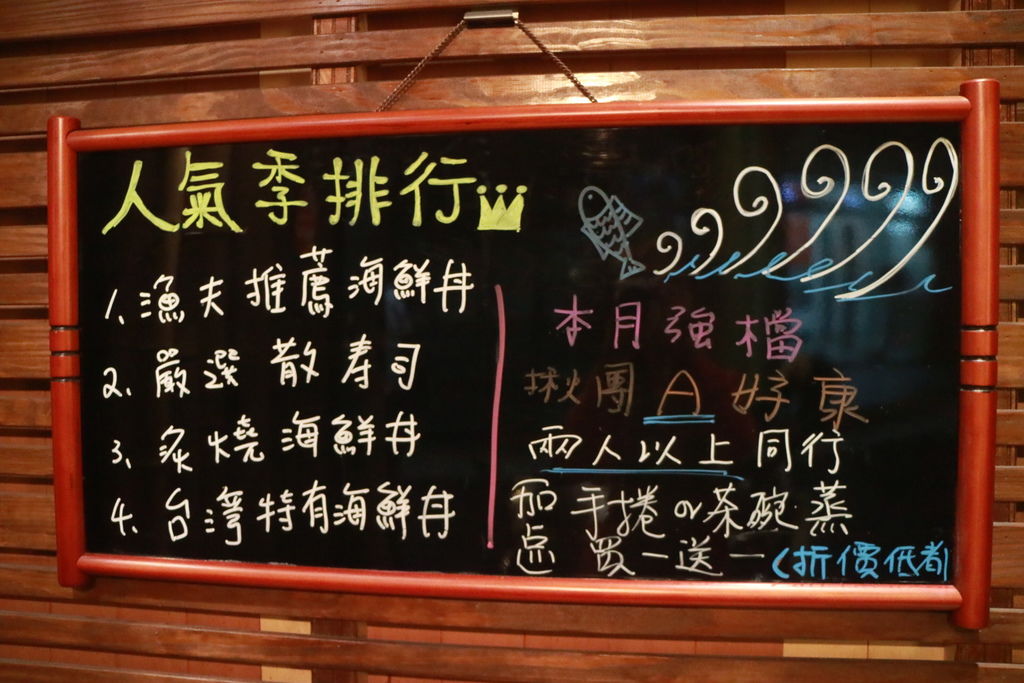 人氣季排行
1. 漁夫推薦海鮮丼
2. 嚴選散寿司
3. 炙燒海鮮丼
4. 台灣特有海鮮丼
本月強檔
揪團A好康
兩人以上同行
加点手捲or茶碗蒸
買一送一(折價低者)